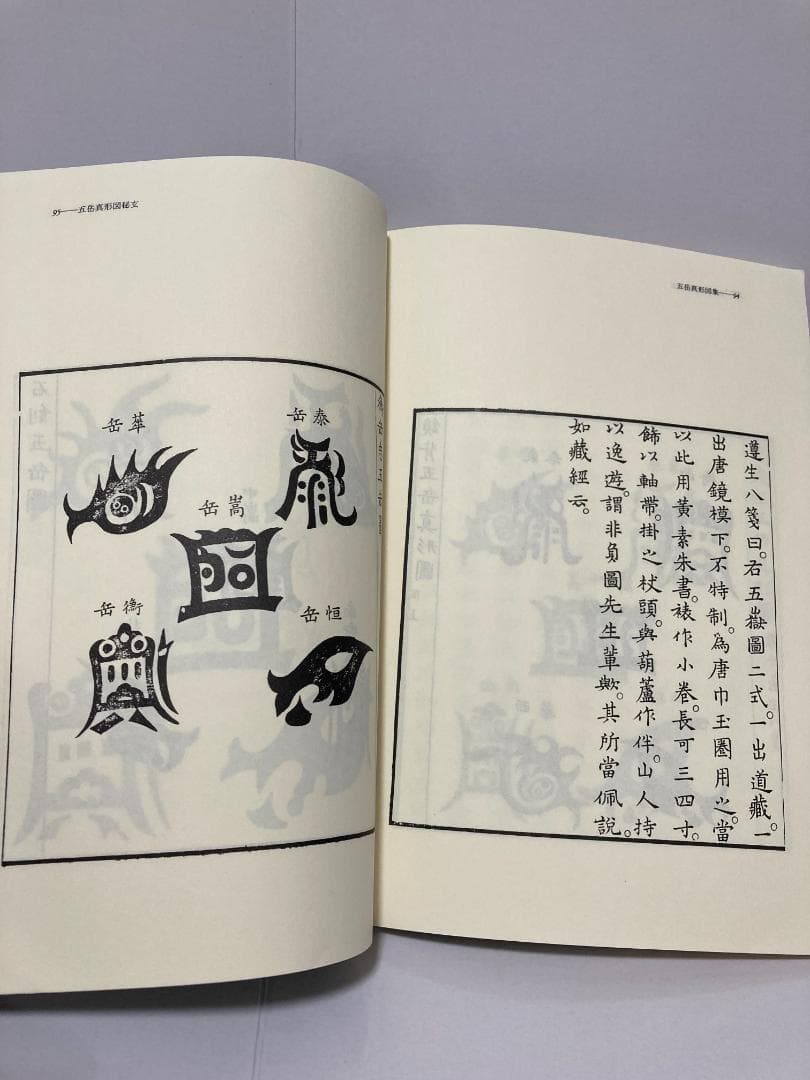 五岳真形図集——94
遵生八箋曰。右五嶽圖二式。一出道藏。一
出唐鏡模下。不特制。為唐巾玉圈用之。當
以此用黃素朱書。裱作小卷。長可三四寸。
飾以軸帶。掛之杖頭。與葫蘆作伴。山人持
以逸遊。謂非負圖先生輩歟。其所當佩說。
如藏經云。
95——五岳真形図秘玄
泰岳
華岳
嵩岳
恒岳
衡岳